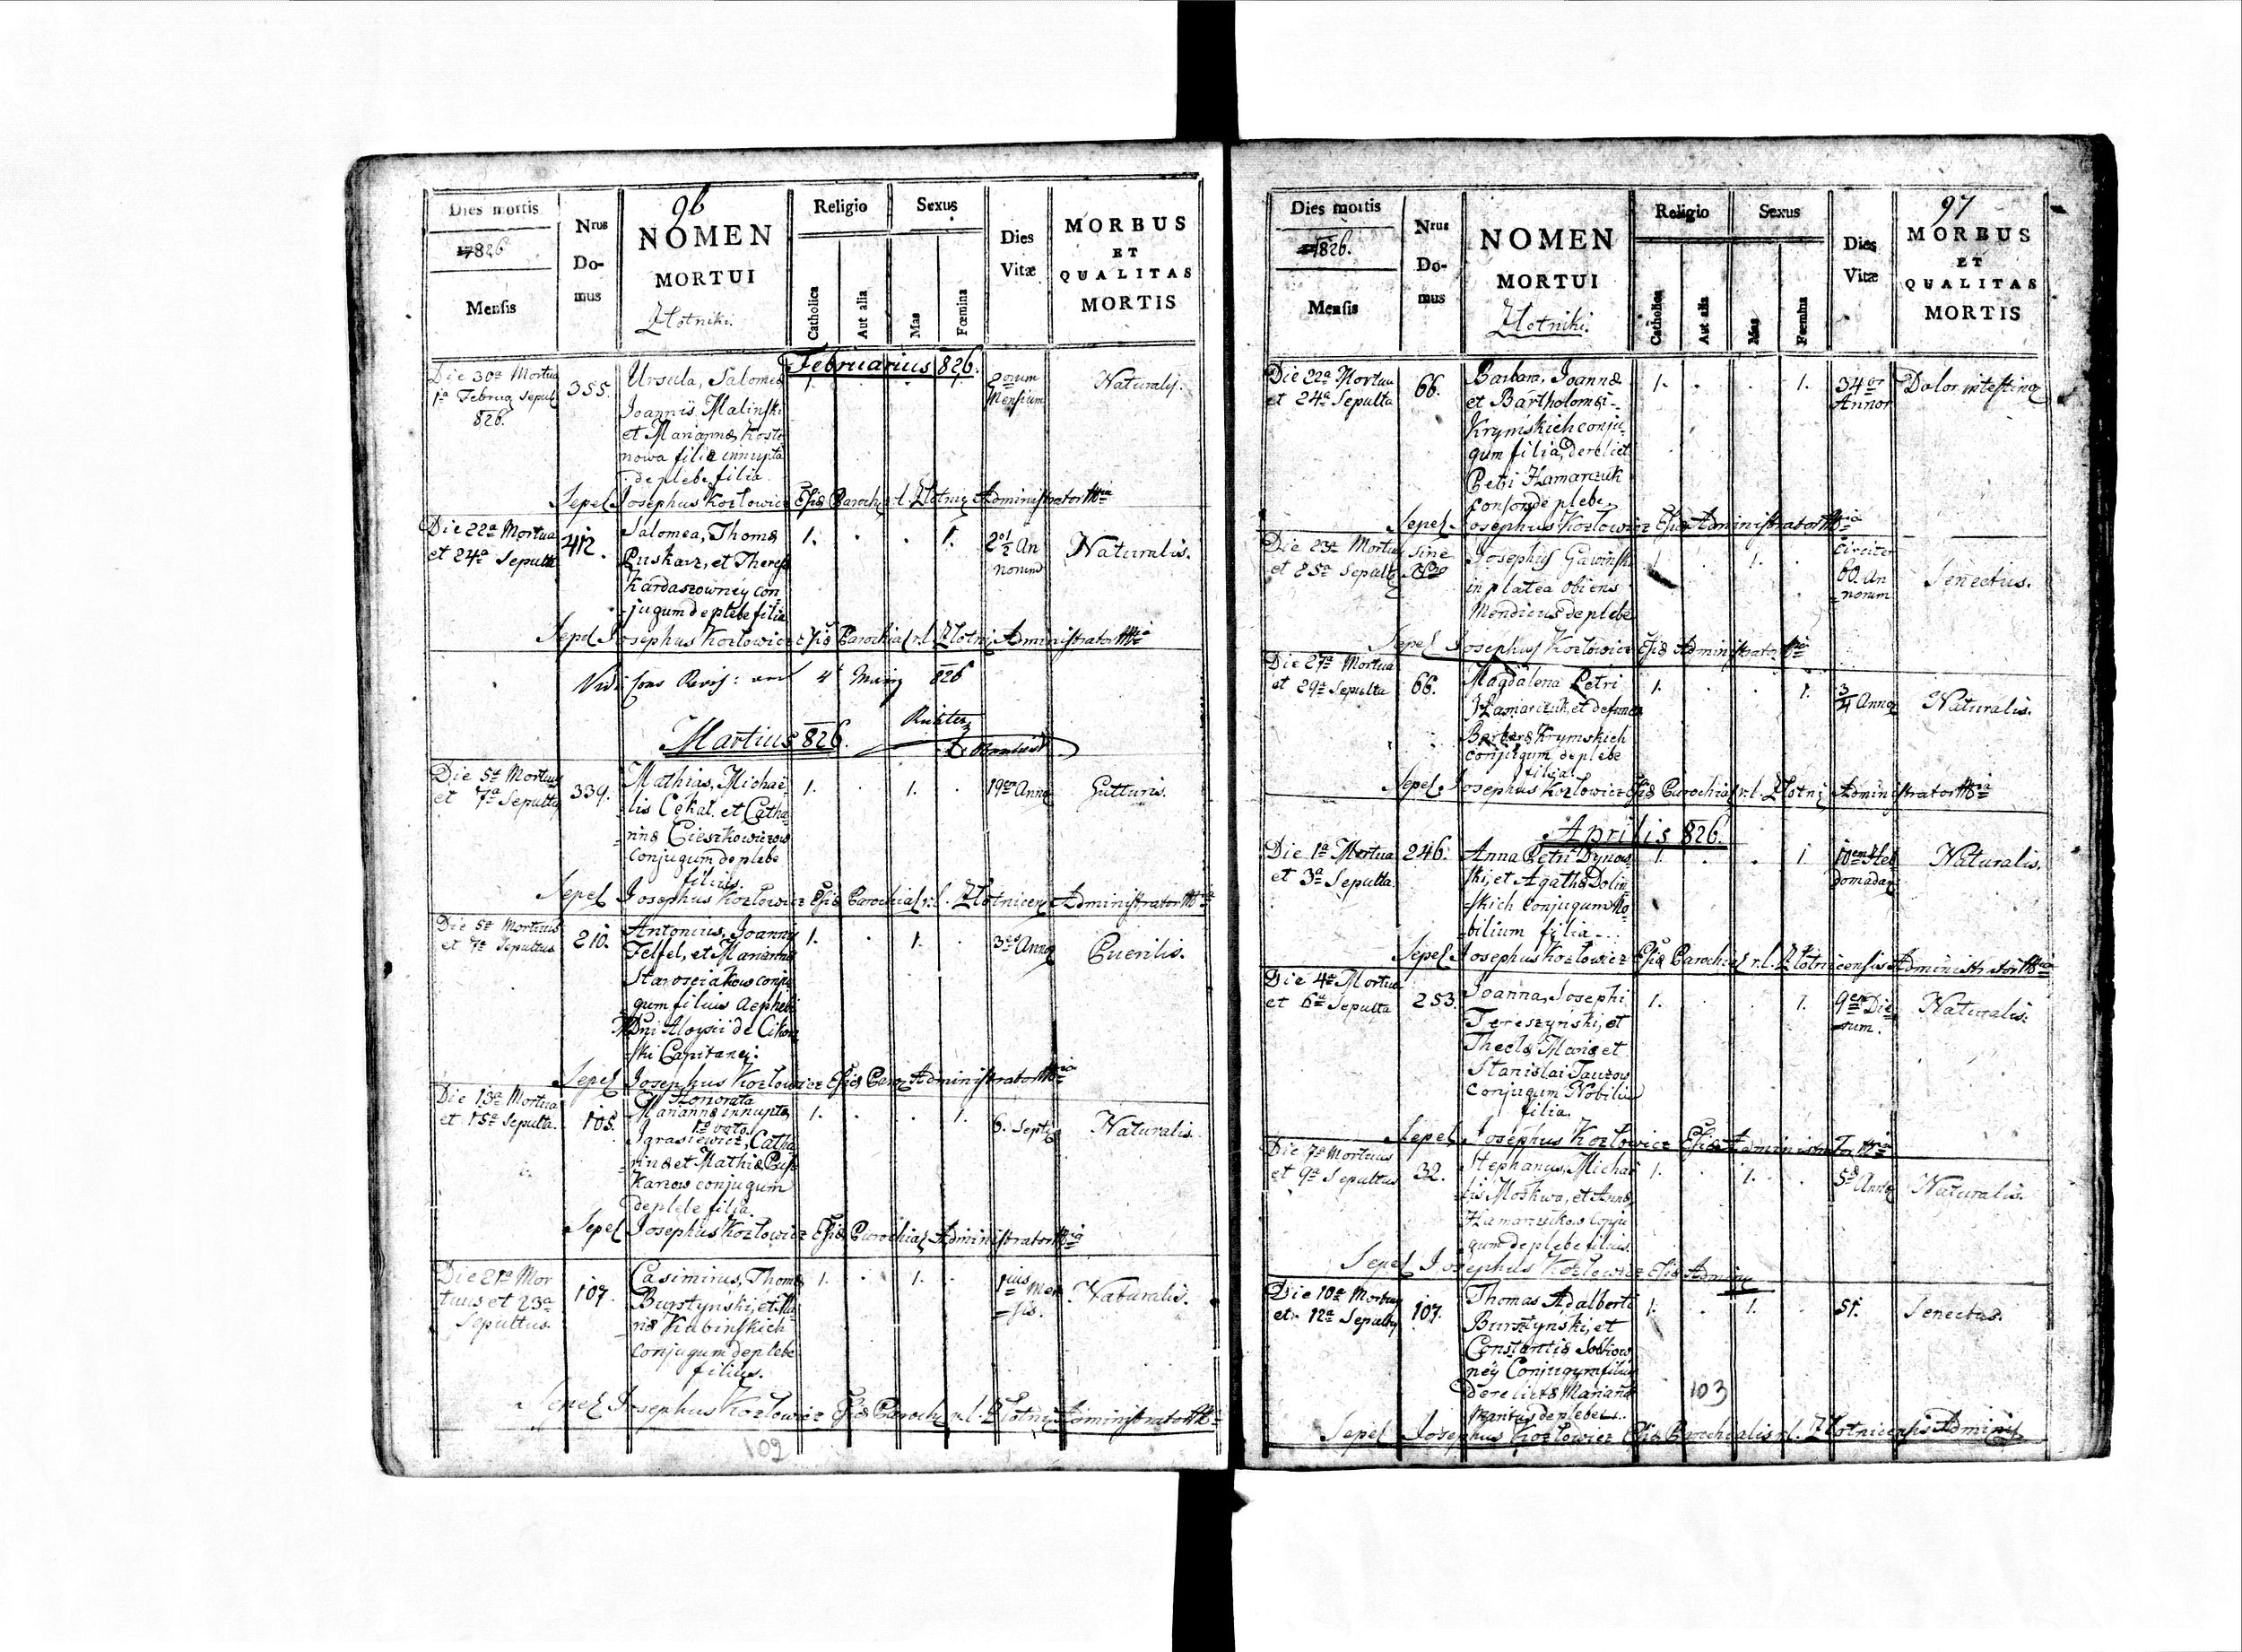 96
Dies mortis
1826
Mensis
Nrus
Do-
mus
NOMEN
MORTUI
Złotniki.
Religio
Catholica
Aut alia
Sexus
Mas
Fœmina
Dies
Vitæ
MORBUS
ET
QUALITAS
MORTIS
Februarius 826.
Die 30a Mortua
1a Februar Sepul
826.
355.
Ursula, Salomea
Joannis Malinski
et Mariannæ Kosto
nowa filia innupta
de plebe filia.
1.
1.
2orum
Mensium
Naturalis.
Sepel Josephus Kozłowicz Eccliæ Paroch r. l. Złotni Administrator
Die 22a Mortua
et 24a Sepulta
412.
Salomea, Thomæ
Puskarz, et Theres
Kardaszowney con
-jugum de plebe filia
1.
.
.
1.
2 1/2 An
norum
Naturalis.
Sepel Josephus Kozłowicz Eccliæ Parochial r. l. Złotni Administrator
826
Martius 826.
Die 5a Mortuus
et 7a Sepultus
339.
Mathias, Michaë-
lis Cękal. et Catha
-rinæ Cieszkowiczow
conjugum de plebe
filius.
1.
.
1.
.
19 Anno
Gutturis.
Sepel Josephus Kozłowicz Eccliæ Parochial r. l. Złotnicen Administrator
Die 5a Mortuus
et 7a Sepultus
210.
Antonius, Joannis
Felfel, et Mariannæ
Starosciakow conju
gum filius
Dni Aloysii de Cikow
ski Capitanei:
1.
.
1.
.
3 Anno
Puerilis.
Sepel Josephus Kozłowicz Eccliæ Paroc Administrator
Die 13a Mortua
et 15a Sepulta.
105.
Honorata
Mariannæ innuptæ
1o voto
Ignasiewicz, Catha
-rinæ et Mathiæ Pus
karzow conjugum
de plebe filia.
1.
.
.
1.
6. Septi
Naturalis.
Sepel Josephus Kozłowicz Eccliæ Parochial Administrator
Die 21a Mor
tuus et 23a
Sepultus.
107.
Casimirus, Thomæ
Burstynski, et Ma
riæ Kubinskich
conjugum de plebe
filius.
1.
.
1.
.
1ius Men
=sis.
Naturalis.
Sepel Josephus Kozłowicz Eccliæ Paroch r. l. Złotni Administrator
102
97
Dies mortis
1826.
Mensis
Nrus
Do-
mus
NOMEN
MORTUI
Złotniki.
Religio
Catholica
Aut alia
Sexus
Mas
Fœmina
Dies
Vitæ
MORBUS
ET
QUALITAS
MORTIS
Die 22a Mortua
et 24a Sepulta
66.
Barbara, Joannæ
et Bartholomæi-
Krymskich conju-
gum filia, derelict
Petri Hamarczuk
consors de plebe
1.
.
.
1.
34or
Annor
Dolor intestin
Sepel Josephus Kozłowicz Eccliæ Administrator
Die 23a Mortuus
et 25a Sepult
Sine
Nro
Josephus Gawinski
in platea obiens
Mendicus de plebe
1.
1.
circiter
60. an
norum
Senectus.
Sepel Josephus Kozłowicz Eccliæ Administrator
Die 27a Mortua
et 29a Sepulta
66.
Magdalena Petri
Hamarczuk, et defunct
Barbaræ Krymskich
conjugum de plebe
filia.
1.
.
.
1.
3/4 Anno
Naturalis.
Sepel Josephus Kozłowicz Eccliæ Parochial r. l. Złotni Administrator
Aprilis 826.
Die 1a Mortua
et 3a Sepulta.
246.
Anna Petri Dynow
ski, et Agathæ Dolin
-skich conjugum No
-bilium filia...
1.
.
.
1
10em Heb
domadar
Naturalis.
Sepel Josephus Kozłowicz Eccliæ Parochial r. l. Złotnicensis Administrator
Die 4a Mortua
et 6a Sepulta
253.
Joanna, Josephi
Tereszynski, et
Theclæ Mariæ et
Stanislai Tauzow
conjugum Nobilium
filia.
1.
.
.
1.
9em Die
-rum.
Naturalis.
Sepel Josephus Kozłowicz Eccliæ Administrator
Die 7a Mortuus
et 9a Sepultus
32.
Stephanus, Michaë
lis Moskwa, et Annæ
Hamarczukow conju
gum de plebe filius.
1.
.
1.
.
5 Anno
Naturalis.
Sepel Josephus Kozłowicz Eccliæ Admin
Die 10a Mortuus
et 12a Sepult
107.
Thomas Adalberti
Burstynski, et
Constantiæ
ney Conjugum filius
derelictæ Mariannæ
Maritus de plebe...
1.
.
1.
.
51.
Senectus.
103
Sepel Josephus Kozłowicz Eccliæ Parochialis r. l. Złotnicensis Adminis